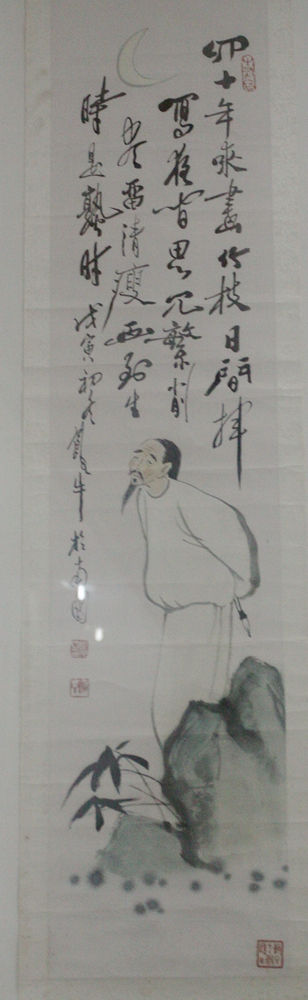 四十年來畫竹枝日間揮
寫夜间思冗繁削
尽留清瘦画到生
時是熟時戊寅初冬牛於南